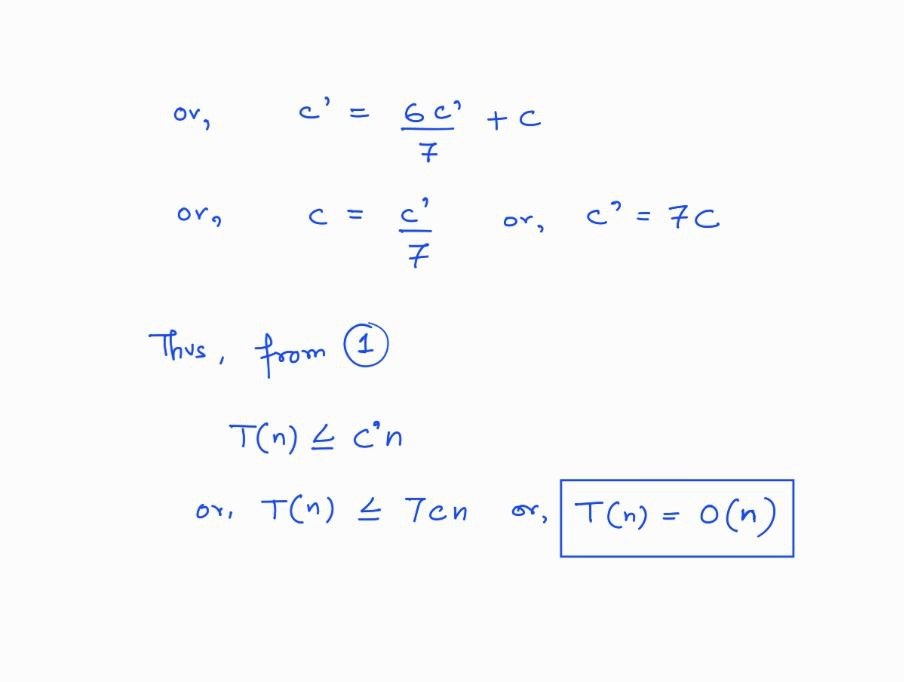 or, c' = 6c'/7 + c
or, c = c'/7 or, c' = 7c
Thus, from ①
T(n) ≤ c'n
or, T(n) ≤ 7cn or, T(n) = O(n)